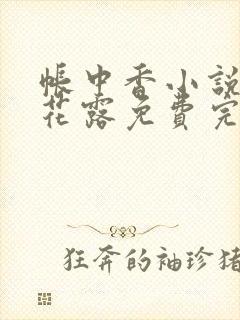 帳中香小說
花露免費完
狂奔的袖珍猪